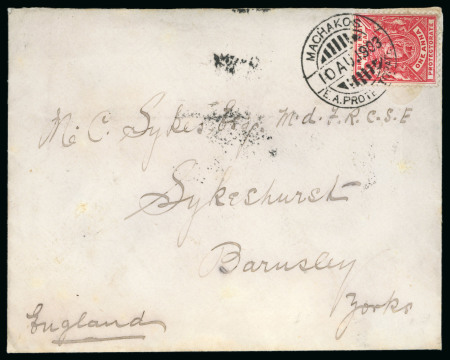 MACHAKOS
10 AU 1903
E.A. PROTECTORATE
ONE ANNA
PROTECTORATE
M. C. Sykes Esq M.d.F.R.C.S.E
Sykehurst
Barnsley
Yorks
England